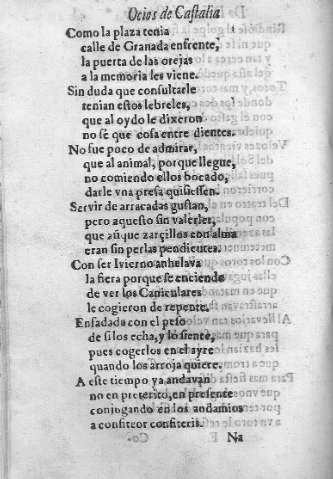 Ocios de Castalia
Como la plaza tenia
calle de Granada enfrente,
la puerta de las orejas
a la memoria les viene.
Sin duda que consultarle
tenian estos lebreles,
que al oydo le dixeron
no sê que cosa entre dientes.
No fue poco de admirar,
que al animal, porque llegue,
no comiendo ellos bocado,
darle vna presa quisiessen.
Servir de arracadas gustan,
pero aquesto sin valerles,
que aũque zarçillos con alma
eran sin perlas pendientes.
Con ser Ivierno anhelava
la fiera porque se enciende
de ver los Caniculares
le cogieron de repente.
Enfadada con el peso
de si los echa, y lo siente,
pues cogerlos en el ayre
quando los arroja quiere.
A este tiempo ya andavan
no en preterito, en presente
conjugando en los andamios
a confiteor confiteris.
Na